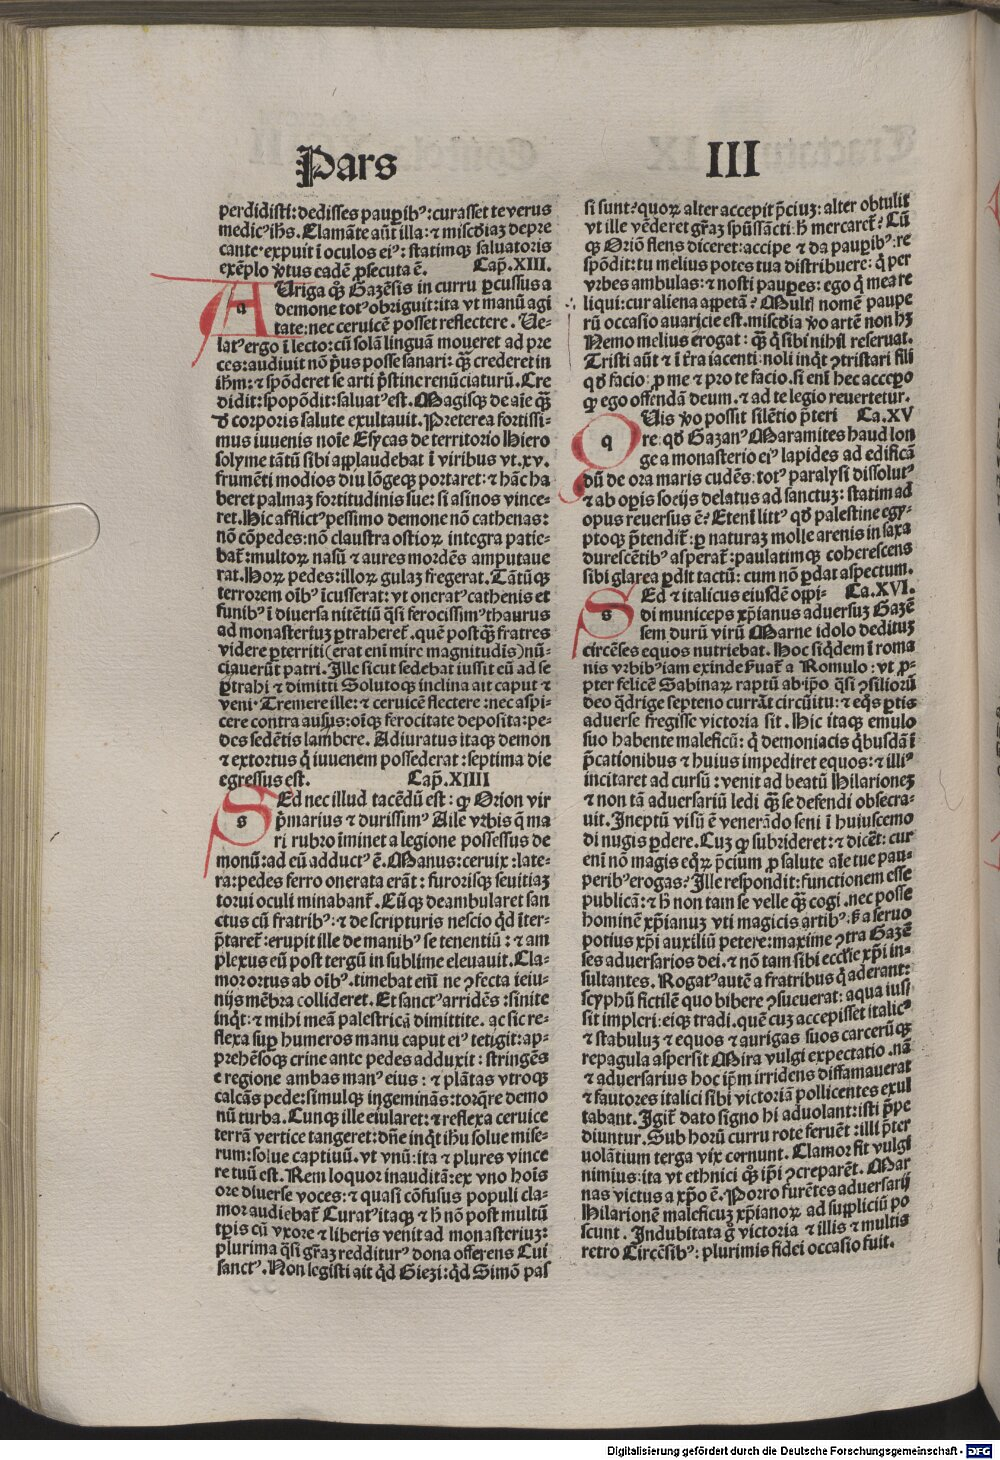 Pars
III
perdidisti: dedisses pauꝑibꝰ: curasset te verus
medicꝰ ihs. Clamāte aūt illa: ⁊ miscd̄iaꝫ depre
cante· expuit ī oculos eiꝰ: statimqꝫ saluatoris
exēplo ꝟtus eadē ꝓsecuta ē. Cap̄. XIII.
a
AUriga q̊ꝫ Gazēsis in curru ꝑcussus a
demone totꝰ obriguit: ita vt manū agi
tate: nec ceruicē posset reflectere. Ue-
latꝰ ergo ī lecto: cū solā linguā moueret ad pre
ces: audiuit nō pꝰus posse sanari: qꝫ̄ crederet in
ihm̄: ⁊ spōderet se arti pꝰstine renūciaturū. Cre
didit: spopōdit: saluatꝰ est. Magisqꝫ de aīe qꝫ̄
d̄ corporis salute exultauit. Preterea fortissi-
mus iuuenis noīe Esycas de territorio Hiero
solyme tātū sibi applaudebat ī viribus vt .xv.
frumēti modios diu lōgeqꝫ portaret: ⁊ hāc ha
beret palmaꝫ fortitudinis sue: si asinos vince-
ret. Hic afflictꝰ pessimo demone nō cathenas:
nō cōpedes: nō claustra ostioꝝ integra patie-
bat̄: multoꝝ nasū ⁊ aures mordēs amputaue
rat. Hoꝝ pedes: illoꝝ gulaꝫ fregerat. Tātūqꝫ
terrorem oībꝰ īcusserat: vt oneratꝰ cathenis et
funibꝰ ī diuersa nitētiū q̄si ferocissimꝰ thaurus
ad monasteriuꝫ ꝑtraheret̄. quē postqꝫ̄ fratres
videre ꝑterriti (erat enī mire magnitudis) nū-
ciauerūt patri. Ille sicut sedebat iussit eū ad se
ꝑtrahi ⁊ dimitti Solutoqꝫ inclina ait caput ⁊
veni· Tremere ille: ⁊ ceruicē flectere: nec aspi-
cere contra ausus: oīqꝫ ferocitate deposita: pe-
des sedētis lambere. Adiuratus itaqꝫ demon
⁊ extortus q̇ iuuenem possederat: septima die
egressus est. Cap̄. XIIII
s
SEd nec illud tacēdū est: ꝙ Orion vir
pꝰmarius ⁊ durissimꝰ Aile vrbis q̄ ma
ri rubro īminet a legione possessus de
monū: ad eū adductꝰ ē. Manus: ceruix: late-
ra: pedes ferro onerata erāt: furorisqꝫ seuitiaꝫ
torui oculi minabant̄. Cūqꝫ deambularet san
ctus cū fratribꝰ: ⁊ de scripturis nescio qd̄ īter-
pꝰtaret̄: erupit ille de manibꝰ se tenentiū: ⁊ am
plexus eū post tergū in sublime eleuauit. Cla-
mor ortus ab oībꝰ. timebat enī ne ꝯfecta ieiu-
nijs mēbra collideret. Et sanctꝰ arridēs: sinite
inqt̄: ⁊ mihi meā palestricā dimittite. ac sic re-
flexa suꝑ humeros manu caput eiꝰ tetigit: ap-
pꝰhēsoqꝫ crine ante pedes adduxit: stringēs
e regione ambas manꝰ eius: ⁊ plātas vtroqꝫ
calcās pede: simulqꝫ ingeminās: torq̄re demo
nū turba. Cunqꝫ ille eiularet: ⁊ reflexa ceruice
terrā vertice tangeret: dn̄e inqt̄ ihu solue mise-
rum: solue captiuū. vt vnū: ita ⁊ plures vince
re tuū est. Rem loquor inauditā: ex vno hoīs
ore diuerse voces: ⁊ quasi cōfusus populi cla-
mor audiebat̄ Curatꝰ itaqꝫ ⁊ h̄ nō post multū
tꝑis cū vxore ⁊ liberis venit ad monasteriuꝫ:
plurima q̄si gr̄aꝫ redditurꝰ dona offerens Cui
sanctꝰ. Non legisti ait qd̄ Giezi: qd̄ Simō pas
si sunt: quoꝝ alter accepit pꝰciuꝫ: alter obtulit
vt ille vēderet gr̄aꝫ spūssāctī: h̄ mercaret̄? Cū
qꝫ Oriō flens diceret: accipe ⁊ da pauꝑibꝰ: re
spōdit: tu melius potes tua distribuere: q̇ per
vrbes ambulas: ⁊ nosti pauꝑes: ego q̇ mea re
liqui: cur aliena appetā? Multꝭ nomē paupe
rū occasio auaricie est. miscd̄ia ꝟo artē non hꝫ
Nemo melius erogat: qꝫ̄ q̇ sibi nihil reseruat.
Tristi aūt ⁊ ī t̄ra iacenti: noli inqt̄ ꝯtristari fili
qd̄ facio: ꝓ me ⁊ pro te facio. si enī hec accepo
ꝙ ego offendā deum. ⁊ ad te legio reuertetur.
q
QUis ꝟo possit silētio pꝰteri Ca. XV
re: qd̄ Gazanꝰ Maramites haud lon
ge a monasterio eiꝰ lapides ad edificā
dū de ora maris cudēs: totꝰ paralysi dissolutꝰ
⁊ ab oꝑis socijs delatus ad sanctuꝫ: statim ad
opus reuersus ē? Etenī littꝰ qd̄ palestine egy-
ptoqꝫ pꝰtendit̄: ꝑ naturaꝫ molle arenis in saxa
durescētibꝰ asperat̄: paulatimqꝫ coherescens
sibi glarea ꝑdit tactū: cum nō ꝑdat aspectum.
s
SEd ⁊ italicus eiusdē oppi- Ca. XVI.
di municeps xp̄ianus aduersuꝫ Gazē
sem durū virū Marne idolo dedituꝫ
circēses equos nutriebat. Hoc siqd̄em ī roma
nis vrbibꝰ iam exinde ẜuat̄ a Romulo: vt ꝓ-
pter felicē Sabinaꝝ raptū ab ip̄o q̄si ꝯsilioꝝ
deo qd̄rige septeno currāt circūitu: ⁊ eq̊s ꝑtis
aduerse fregisse victoria sit. Hic itaqꝫ emulo
suo habente maleficū: q̇ demoniacis q̇busdā ī
pꝰcationibus ⁊ huius impediret equos: ⁊ illiꝰ
incitaret ad cursū: venit ad beatū Hilarioneꝫ
⁊ non tā aduersariū ledi qꝫ̄ se defendi obsecra-
uit. Ineptū visū ē venerādo seni ī huiuscemo
di nugis ꝑdere. Cuꝫ ꝙ subrideret: ⁊ dicēt: cur
enī nō magis eq̊ꝝ pꝰcium ꝓ salute aīe tue pau-
peribꝰ erogas? Ille respondit: functionem esse
publicā: ⁊ h̄ non tam se velle qꝫ̄ cogi. nec posse
hominē xp̄ianuꝫ vti magicis artibꝰ. ẜꝫ a seruo
potius xp̄i auxiliū petere: maxime ꝯtra Gazē
ses aduersarios dei. ⁊ nō tam sibi eccl̄ie xp̄i in-
sultantes. Rogatꝰ autē a fratribus q̇ aderant:
scyphū fictilē quo bibere ꝯsueuerat: aqua iussi
sit impleri: eiqꝫ tradi. quē cuꝫ accepisset italicꝰ
⁊ stabuluꝫ ⁊ equos ⁊ aurigas suos carcerūqꝫ
repagula aspersit Mira vulgi expectatio. nā
⁊ aduersarius hoc ip̄m irridens diffamauerat
⁊ fautores italici sibi victoriā pollicentes exul
tabant. Igit̄ dato signo hi aduolant: isti pꝰpe
diuntur. Sub horū curru rote feruēt: illi pꝰter
uolātium terga vix cernunt. Clamor fit vulgi
nimius: ita vt ethnici q̊ꝫ ip̄i ꝯcreparēt. Mar
nas victus a xp̄o ē. Porro furētes aduersarij
Hilarionē maleficuꝫ xp̄ianoꝝ ad suppliciū po
scunt. Indubitata g̊ victoria ⁊ illis ⁊ multis
retro Circēsibꝰ: plurimis fidei occasio fuit.
Digitalisierung gefördert durch die Deutsche Forschungsgemeinschaft - DFG